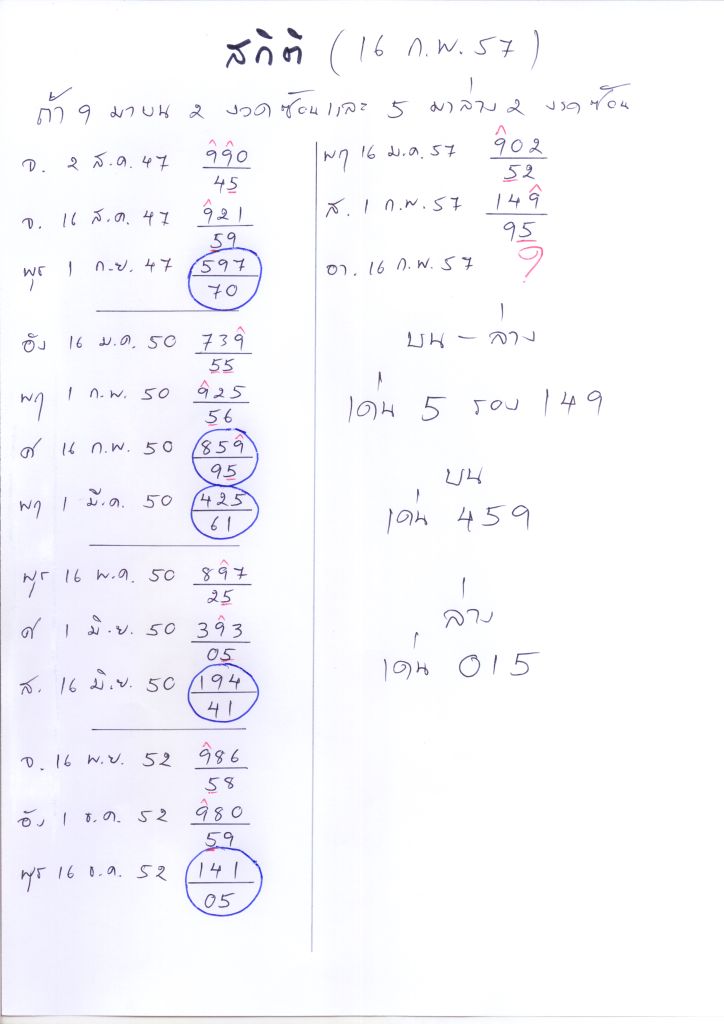 สถิติ (16 ก.พ. 57)
ถ้า 9 มาบน 2 งวดซ้อนและ 5 มาล่าง 2 งวดซ้อน
จ. 2 ส.ค. 47 990
45
จ. 16 ส.ค. 47 921
59
พุธ 1 ก.ย. 47 597
70
อัง 16 ม.ค. 50 739
55
พฤ 1 ก.พ. 50 925
56
ศ 16 ก.พ. 50 859
95
พฤ 1 มี.ค. 50 425
61
พุธ 16 พ.ค. 50 897
25
ศ 1 มิ.ย. 50 393
05
ส. 16 มิ.ย. 50 194
41
จ. 16 พ.ย. 52 986
58
อัง 1 ธ.ค. 52 980
59
พุธ 16 ธ.ค. 52 141
05
พฤ 16 ม.ค. 57 902
52
ส. 1 ก.พ. 57 149
95
อา. 16 ก.พ. 57 ?
บน - ล่าง
เด่น 5 รอง 149
บน
เด่น 459
ล่าง
เด่น 015